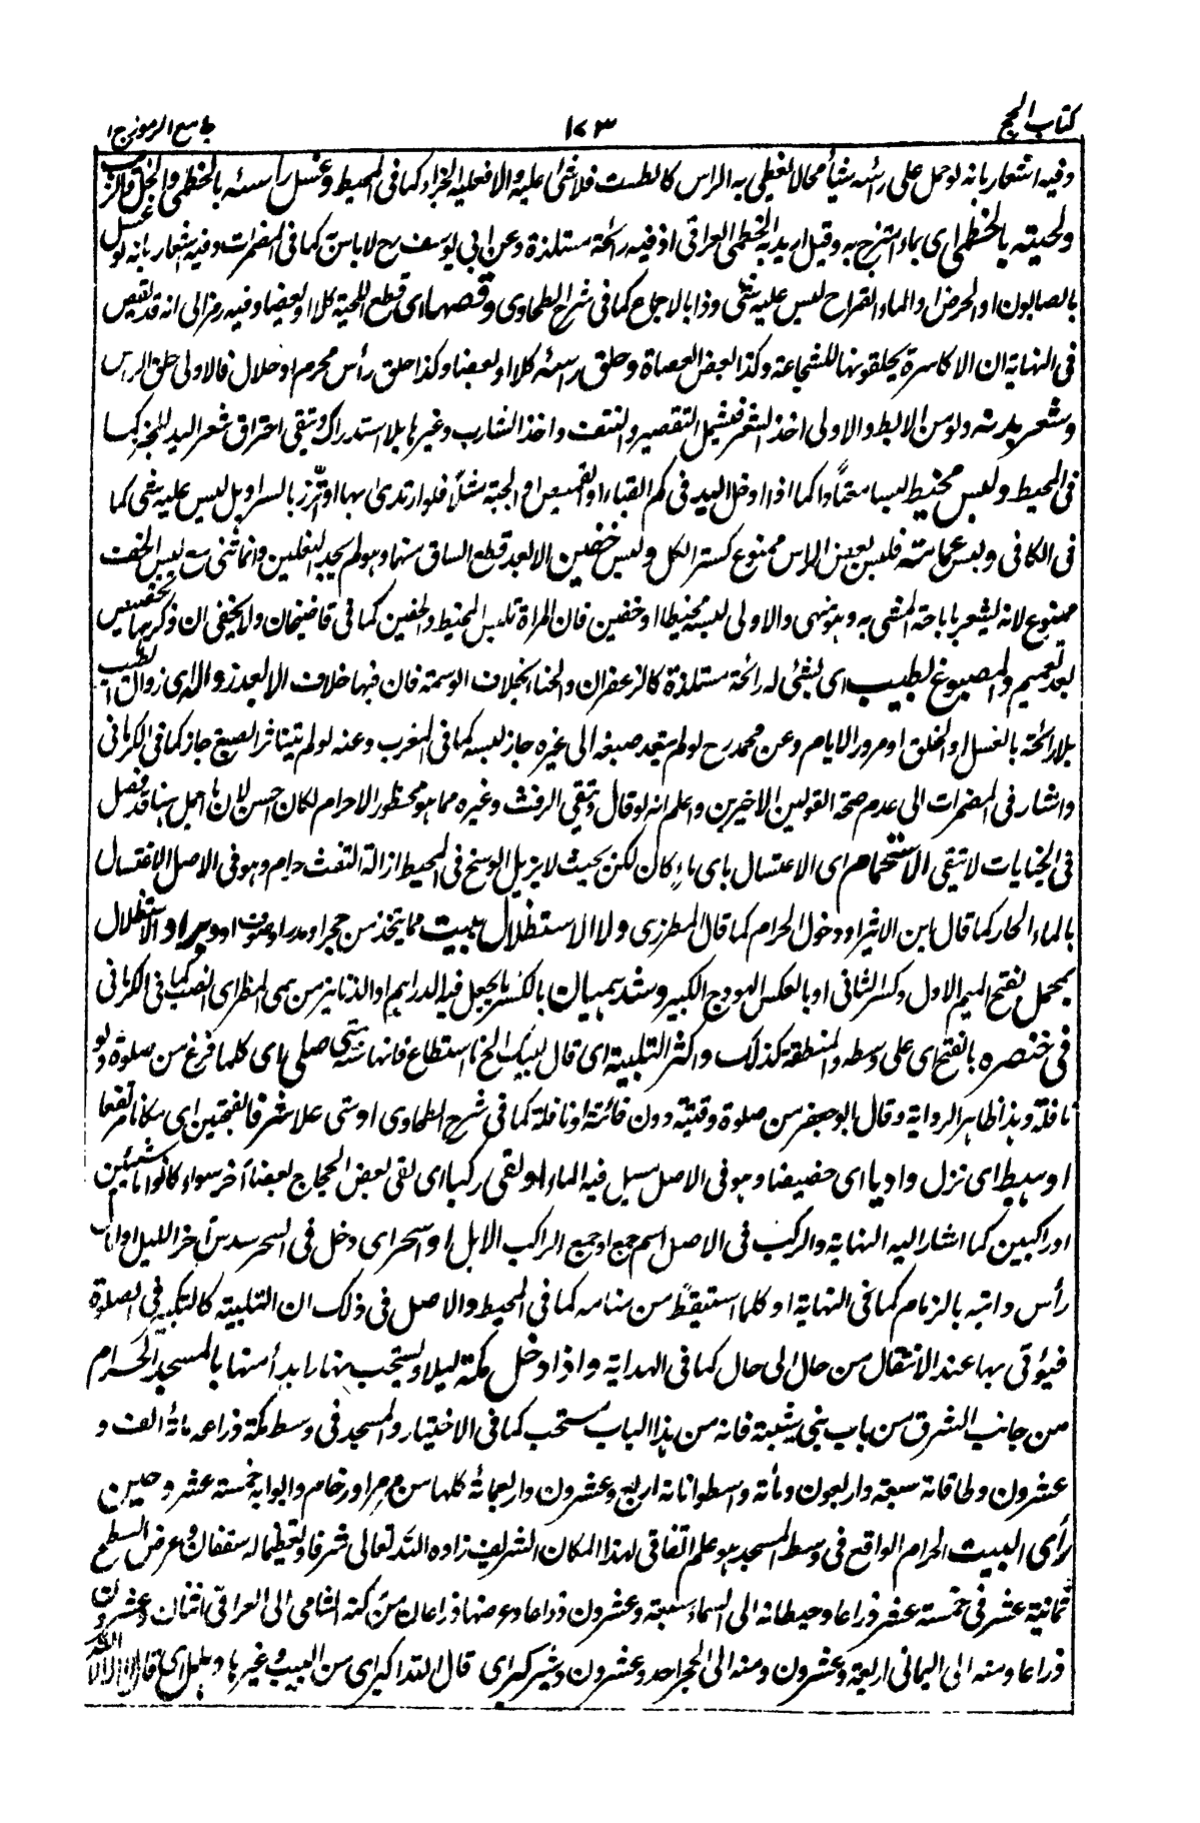 كتاب الحج ١٧٣ جامع الرموز ج ١
وفيه اشعار بانه لو حمل على رأسه شيأ محالا يغطى به الراس كالطست فلا شئ عليه والا فعليه الجزاء كما فى المحيط وغسل رأسه بالخطمى
ولحيته بالخطمى اى بماء امتزج به وقيل اريد به الخطمى العراقى اذ فيه رائحة مستلذة وعن ابى يوسف رح لا باس به كما فى المضمرات وفيه اشعار بانه لو غسل
بالصابون او الحرض او الماء القراح ليس عليه شئ وذا بالاجماع كما فى شرح الطحاوى وقصها اى قطع اللحية كلا او بعضا وفيه رمز الى انه قد نقص
فى النهاية ان الاكاسرة يحلقونها للشجاعة وكذا بعض العصاة وحلق رأسه كلا او بعضا وكذا حلق رأس محرم او حلال فالاولى حلق الراس
وشعر بدنه ولو من الابط والاولى اخذ الشعر فيشمل التقصير والنتف واخذ الشارب وغيرها بلا استدراك وتقى احتراق شعر اليد للخبز كما
فى المحيط ولبس مخيط لبسا معتادا كما اذا ادخل اليد فى كم القباء او القميص او الجبة مثلا فلو ارتدى بها او اتزر بالسراويل ليس عليه شئ كما
فى الكافى ولبس عمامته فلبس بعض الراس ممنوع كستر الكل ولبس خفين الا بعد قطع الساق منها وهو لم يجد النعلين وانما ثنى لبس الخف
ممنوع لانه يشعر باباحة المشى به وهو منهى والاولى لبسه مخيطا او خفين فان المراة تلبس المخيط والخفين كما فى قاضيخان ولا يخفى ان ذكرها تخصيص
بعد تعميم والمصبوغ بطيب اى بشئ له رائحة مستلذة كالزعفران والحناء بخلاف الوسمة فان فيها خلاف الا بعد زواله اى زوال الطيب
بلا رائحة بالغسل او الخلق او مرور الايام وعن محمد رح لو لم يتعد صبغه الى غيره جاز لبسه كما فى المغرب وعنه لو لم يتناثر الصبغ جاز كما فى الكرمانى
واشار فى المضمرات الى عدم صحة القولين الاخيرين واعلم انه لو قال وتقى الرفث وغيره مما هو محظور الاحرام لكان احسن لان ما اجمل هنا قد فصل
فى الجنايات لا تتقى الاستحمام اى الاغتسال باى ماء كان لكن بحيث لا يزيل الوسخ فى المحيط ازالة التفث حرام وهو فى الاصل الاغتسال
بالماء الحار كما قال ابن الاثير او دخول الحرام كما قال المطرزى ولا الاستظلال ببيت مما يتخذ من حجر او مدر او صوف او وبر او الاستظلال
بمحمل بفتح الميم الاول وكسر الثانى او بالعكس الهودج الكبير وشد هميان بالكسر ما يجعل فيه الدراهم او الدنانير من همى المطر اى انصب كما فى الكرمانى
فى خنصره بالفتح اى على وسطه والمنطقة كذلك واكثر التلبية اى قال لبيك الخ ما استطاع فانها سنة متى صلى اى كلما فرغ من صلوة ولو
نافلة وهذا ظاهر الرواية وقال ابو جعفر من صلوة وقتية دون فائتة او نافلة كما فى شرح الطحاوى او متى علا شرفا بفتحتين اى مكانا مرتفعا
او هبط اى نزل واديا اى حضيضا وهو فى الاصل مسيل فيه الماء او لقى ركبا اى لقى بعض الحجاج بعضا آخر سواء كانوا ماشيين
او راكبين كما اشار اليه النهاية والركب فى الاصل اسم جمع او جمع الراكب الابل او اسحر اى دخل فى السحر سدس آخر الليل او امال
رأس دابته بالزمام كما فى النهاية او كلما استيقظ من منامه كما فى المحيط والاصل فى ذلك ان التلبية كالتكبير فى الصلوة
فيؤتى بها عند الانتقال من حال الى حال كما فى الهداية واذا دخل مكة ليلا ويستحب نهارا بدأ منها بالمسجد الحرام
من جانب الشرق من باب بنى شيبة فانه من هذا الباب مستحب كما فى الاختيار والمسجد فى وسط مكة ذراعه مائة الف و
عشرون وطاقاته سبعة واربعون ومأة واسطواناته اربع وعشرون واربعمائة كلها من مرمر او رخام وابوابه خمسة عشر وحين
رأى البيت الحرام الواقع فى وسط المسجد هو علم اتفاقى لهذا المكان الشريف زاده الله تعالى شرفا وتعظيما له سقفان وعرض السطح
ثمانية عشر فى خمسة عشر ذراعا وحيطانه الى السماء سبعة وعشرون ذراعا وعرضها ذراعان من ركنه الشامى الى العراقى اثنان وعشرون
ذراعا ومنه الى اليمانى اربعة وعشرون ومنه الى الحجر احد وعشرون وشبر كبر اى قال الله اكبر اى من البيت وغيرها وهلل اى قال لا اله الا الله